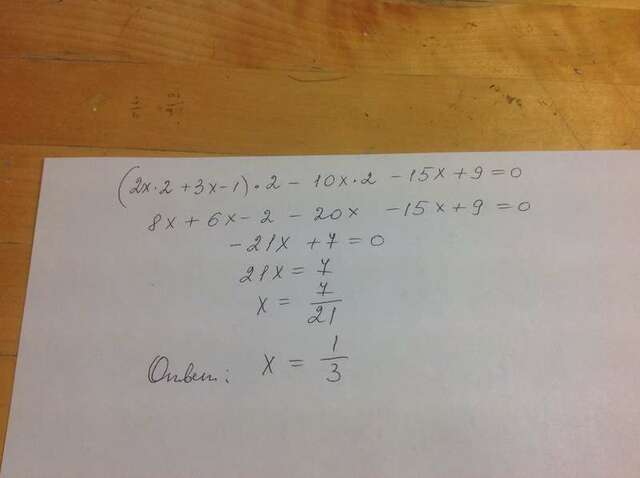 (2x·2+3x-1)·2-10x·2-15x+9=0
8x+6x-2-20x-15x+9=0
-21x+7=0
21x=7
x=7/21
Ответ: x=1/3